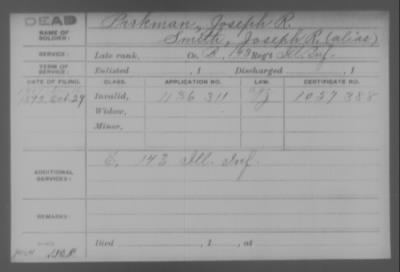 DEAD
NAME OF SOLDIER:
Parkman, Joseph R.
Smith, Joseph R. (alias)
SERVICE:
Late rank, Co. B, 143 Reg't Ill. Inf.
TERM OF SERVICE:
Enlisted , 1 Discharged , 1
DATE OF FILING. CLASS. APPLICATION NO. LAW. CERTIFICATE NO.
1892 Oct. 29 Invalid, 1136311 1057388
Widow,
Minor,
ADDITIONAL SERVICES:
C, 143 Ill. Inf.
REMARKS:
Died , 1 , at